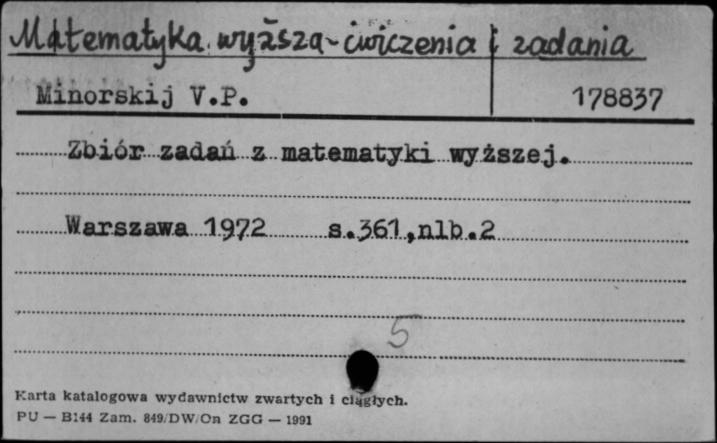 Matematyka wyższa - ćwiczenia i zadania
Minorskij V.P. 178837
Zbiór zadań z matematyki wyższej.
Warszawa 1972 s.361,nlb.2
5
Karta katalogowa wydawnictw zwartych i ciągłych.
PU — B144 Zam. 849/DW/On ZGG — 1991